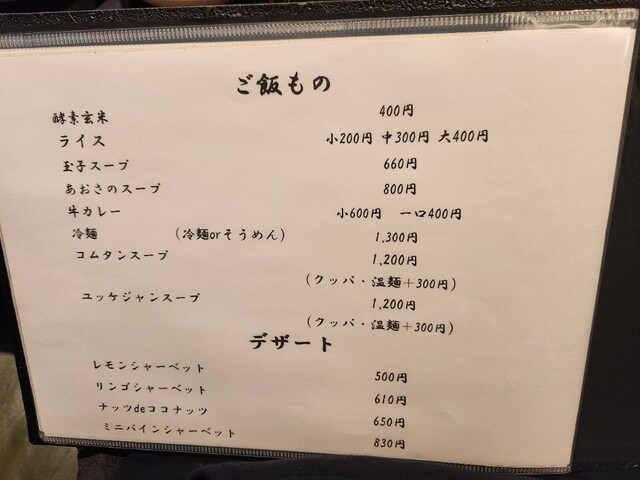 ご飯もの
酵素玄米 400円
ライス 小200円 中300円 大400円
玉子スープ 660円
あおさのスープ 800円
牛カレー 小600円 一口400円
冷麺 (冷麺orそうめん) 1,300円
コムタンスープ 1,200円
(クッパ・温麺+300円)
ユッケジャンスープ 1,200円
(クッパ・温麺+300円)
デザート
レモンシャーベット 500円
リンゴシャーベット 610円
ナッツdeココナッツ 650円
ミニパインシャーベット 830円